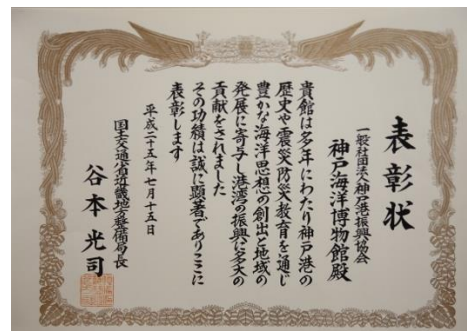 表彰状
一般社団法人神戸港振興協会
神戸海洋博物館殿
貴館は多年にわたり神戸港の
歴史や震災防災教育を通じ
豊かな海洋思想の創出と地域の
発展に寄与し港湾の振興に多大の
貢献をされました
その功績は誠に顕著でありここに
表彰します
平成二十五年七月十五日
国土交通省近畿地方整備局長
谷本光司